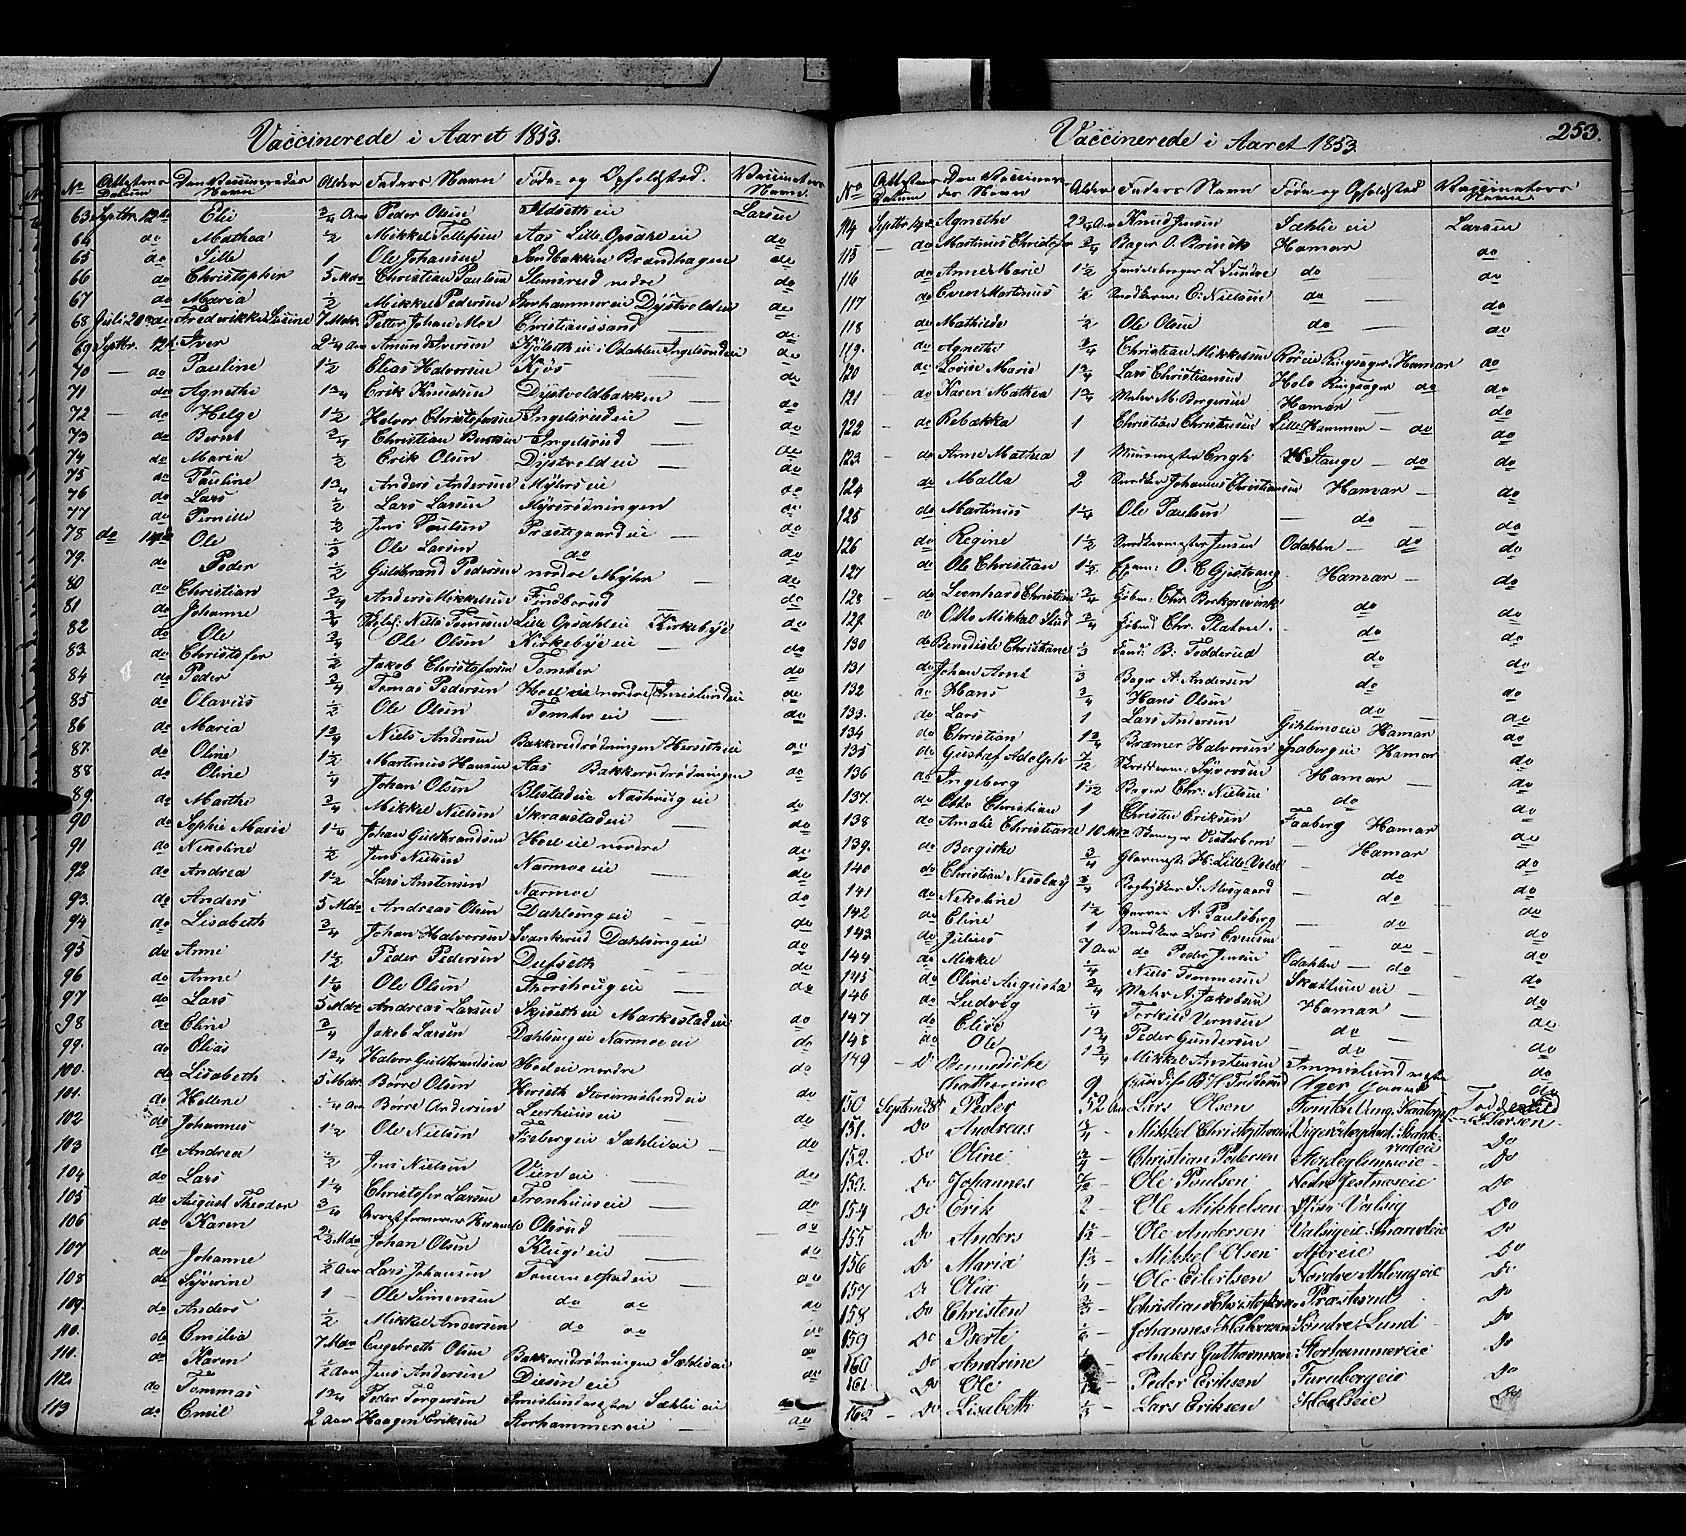 Vaccinerede i Aaret 1853.
No Attestens Datum Den Vaccineredes Navn Alder Faders Navn Føde- og Opholdsted. Vaccinators Navn.
63 Septbr. 12te Eli 3/4 Aar Peder Olsen Ildseth eie Larsen
64 do Mathea 1/2 Mikkel Tollefsen Aas Lille Opsahl eie do
65 do Sille 1 Ole Johansen Sandbakken Brandhagen do
66 do Christopher 5 Mdr. Christian Paulsen Slemsrud nedre do
67 do Maria 1/2 Mikkel Pedersen Storhammer eie Dystvold eie do
68 Juli 20 do Frederikke Lusine 7 Mdr. Petter Johan Moe Christianssand do
69 Septbr. 12te Iver 2 1/4 Aar Amund Iversen i Odahlen Ingelsrud eie do
70 — do Pauline 1 1/2 Elias Halvorsen Kjos do
71 do Agnethe 1 3/4 Erik Knudsen Dystvoldbakken do
72 — do Helge 1 1/2 Halvor Christofersen Ingelsrud eie do
73 do Bernt 3/4 Christian Berntsen Ingelsrud do
74 do Maria 1/2 Erik Olsen Dystvold eie do
75 do Pauline 1 3/4 Anders Andersen Myhrs eie do
76 do Lars 1/2 Lars Larsen Mysrødningen do
77 do Pernille 1/2 Jens Paulsen Præstegaard eie do
78 do 14de Ole 1/3 Ole Larsen do do
79. do Peder 1/2 Guldbrand Pedersen nordre Myhr do
80 do Christian 3/4 Anders Mikkelsen Finsborud do
81 do Johanne 3/4 Niels Lille Opsahl eie Kirkebye do
82 do Ole 3/4 Ole Olsen Kirkebye eie do
83. do Christofer 1/2 Jakob Christofersen Tomter do
84 do Peder 3/4 Tomas Pedersen Hoel eie nordre do
85 do Olavus 1/2 Ole Olsen Tomter eie do
86 do Maria 1 3/4 Niels Andersen Bakkerudrødningen Herseth eie do
87. do Oline 1 1/2 Martinus Hansen Aas Bakkerudrødningen do
88 do Oline 1/4 Johan Olsen Blestad eie Nashoug eie
89. do Marthe 3/4 Mikkel Nielsen Skramstad eie do
90 do Sophie Marie 1 1/4 Johan Guldbrandsen Hoel eie nordre do
91 do Nikoline 1/2 Jens Nielsen Narmoe eie do
92 do Andrea 1 1/2 Lars Anstensen Narmoe do
93. do Anders 5 Mdr Andreas Olsen Dahlseng eie do
94 do Lisabeth 3/4 Johan Halvorsen Svenkerud Dahlseng eie do
95 do Anne 1 1/2 Peder Pedersen Dufseth do
96 do Anne 1 1/4 Ole Olsen Thorshoug eie do
97 do Lars 5 Mdr Andreas Larsen Skjeseth eie Markestad eie do
98 do Eline 3/4 Jakob Larsen Dahlseng eie Narmoe eie do
99. do Elias 1 3/4 Halvor Guldbrandsen Hoel eie nordre do
100. do Lisabeth 5 Mdr. Børre Olsen Herseth do
101. do Hellene 1/4 Aar Børre Andersen Leerhuus eie do
102 do Johannes 1 1/2 Ole Nielsen Frebergeie Sæhlie eie do
103 do Andrea 1/2 Jens Nielsen Vien eie do
104 do Lars 1 1/4 Christofer Larsen Fremhuus eie do
105 do August Theodor 3/4 Olsrud do
106 do Karen 2 1/2 Mdr Johan Olsen Kluge eie do
107 do Johanne 1/2 Aar Lars Johansen Tommelstad eie do
108 do Syverine 1 — Ole Simensen do do do
109. do Anders 1/2 Mikkel Andersen do do do
110. do Emilia 7 Mdr Engebreth Olsen Bakkerudrødningen Sæhlie eie do
111. do Karen 1/2 Aar Jens Andersen Diesen eie do
112. do Tommas 1 3/4 Peder Torgersen Sæhlie eie do
113 do Emil 2 Aar Haagen Eriksen Storhammer eie do
Vaccinerede i Aaret 1853. 253.
No Attestens Datum Den Vaccineredes Navn Alder Faders Navn Føde og Opholdsted Vaccinators Navn.
114 Septbr. 14de Agnethe 2 3/4 Aar Knud Jensen Sæhlie eie Larsen
115 — do Martinus Christofer 3/4 Bager O. Hamar do
116 do Anne Marie 1 1/2 L. Sundve do do
117 do Even Martinus 1/2 Snedkerm: E: Nielsen do do
118 do Mathilde 1/2 Ole Olsen do do
119. do Agnethe 3/4 Christian Mikkelsen Ringsager Hamar do
120 do Lovise Marie 1 3/4 Lars Christiansen Hols Ringsager do do
121 — do Karen Mathea 1 3/4 Maler M. Borgersen Hamar do
122 — do Rebækka 1 Christian Christensen Lille Hammer — do do
123. — do Anne Mathea 1 Muurmester Engh Stange — do do
124 do Malla 2 Johannes Christiansen Hamar — do
125 do Martinus 1 1/4 Ole Paulsen — do do
126 do Regine 1 1/2 Snedkermester Jensen Odahlen — do do
127 do Ole Christian 1 1/2 O. C. Gjestvang Hamar — do
128 — do Leonhard Christian 3/4 Chr. Borkgrevink do do
129. do Otto Mikkel 3/4 Chr. Platou. do do
130 do Bendicte Christiane 1/3 B. Fodderud do do
131 do Johan Arnt 1/3 Bager A. Andersen do do
132 do Hans 3/4 Hans Olsen do do
133. do Lars 1 Lars Andersen Hamar — do
134 do Christian 1 3/4 Bræmer Halvorsen Hamar do
135 do Gustaf Adolph 7/12 Syversen Hamar — do
136 do Ingeborg 1 1/2 Bager Chr: Nielsen do do
137. do Otto Christian 1 Christen Eriksen Faaberg Hamar do
138 do Amalie Christiane 10 Mdr Hamar do
139. do Borgiske 3/4 Glarmest: H. Lille Vold do do
140 do Christian Nicolay 3/4 Bogtrykker S. Musgaard do do
141 do Nikoline 1 1/2 Garver A. Paulsberg do do
142 do Eline 1 Snedker Lars Evensen — do do
143. do Julius 7 Aar do Peder Jensen Odahlen — do do
144 do Mikkel 1/4 Niels Tommesen eie do
145 do Oline Augusta 3/4 Maler A. Jakobsen Hamar do
146 do Ludvig 1/4 Torkild Vernsen do do
147 do Elise 1 3/4 Peder Gundersen do do
148 do Ole 1 3/4 Mikkel Anstensen do
149 — D Benedickte Chatharine 9 B H Fodderud Ager Gaard Fodderud
150 Septem 28 Peder 52 Aar Lars Olsen Larsen.
151. Do Andreas 3/4 — Mikkel Christophersen Do
152. Do Oline 3/4 Christian Pedersen Do
153. Do Johannes 7/12 Ole Poulsen Nedre Jestmoeeie Do
154 Do Erik 2 — Ole Mikkelsen Valsig Do
155 Do Anders 1 1/2 — Ole Andersen Valsigeie Do
156 Do Maria 1/3 — Mikkel Olsen Do
157 D Olia 1/4 — Ole Eilertsen Nordre Ahlougeie Do
158 Do Christen 2/3 — Christian Christophersen Præsterud Do
159 Do Berte — Johannes Halvorsen Søndre Lund Do
160 Do Andrine — Anders Guthormsen Storhammereie Do
161. Do Ole — Peder Eriksen Furubergeie Do
162 — Do Lisabeth 1/3 — Lars Eriksen Hoelseie Do